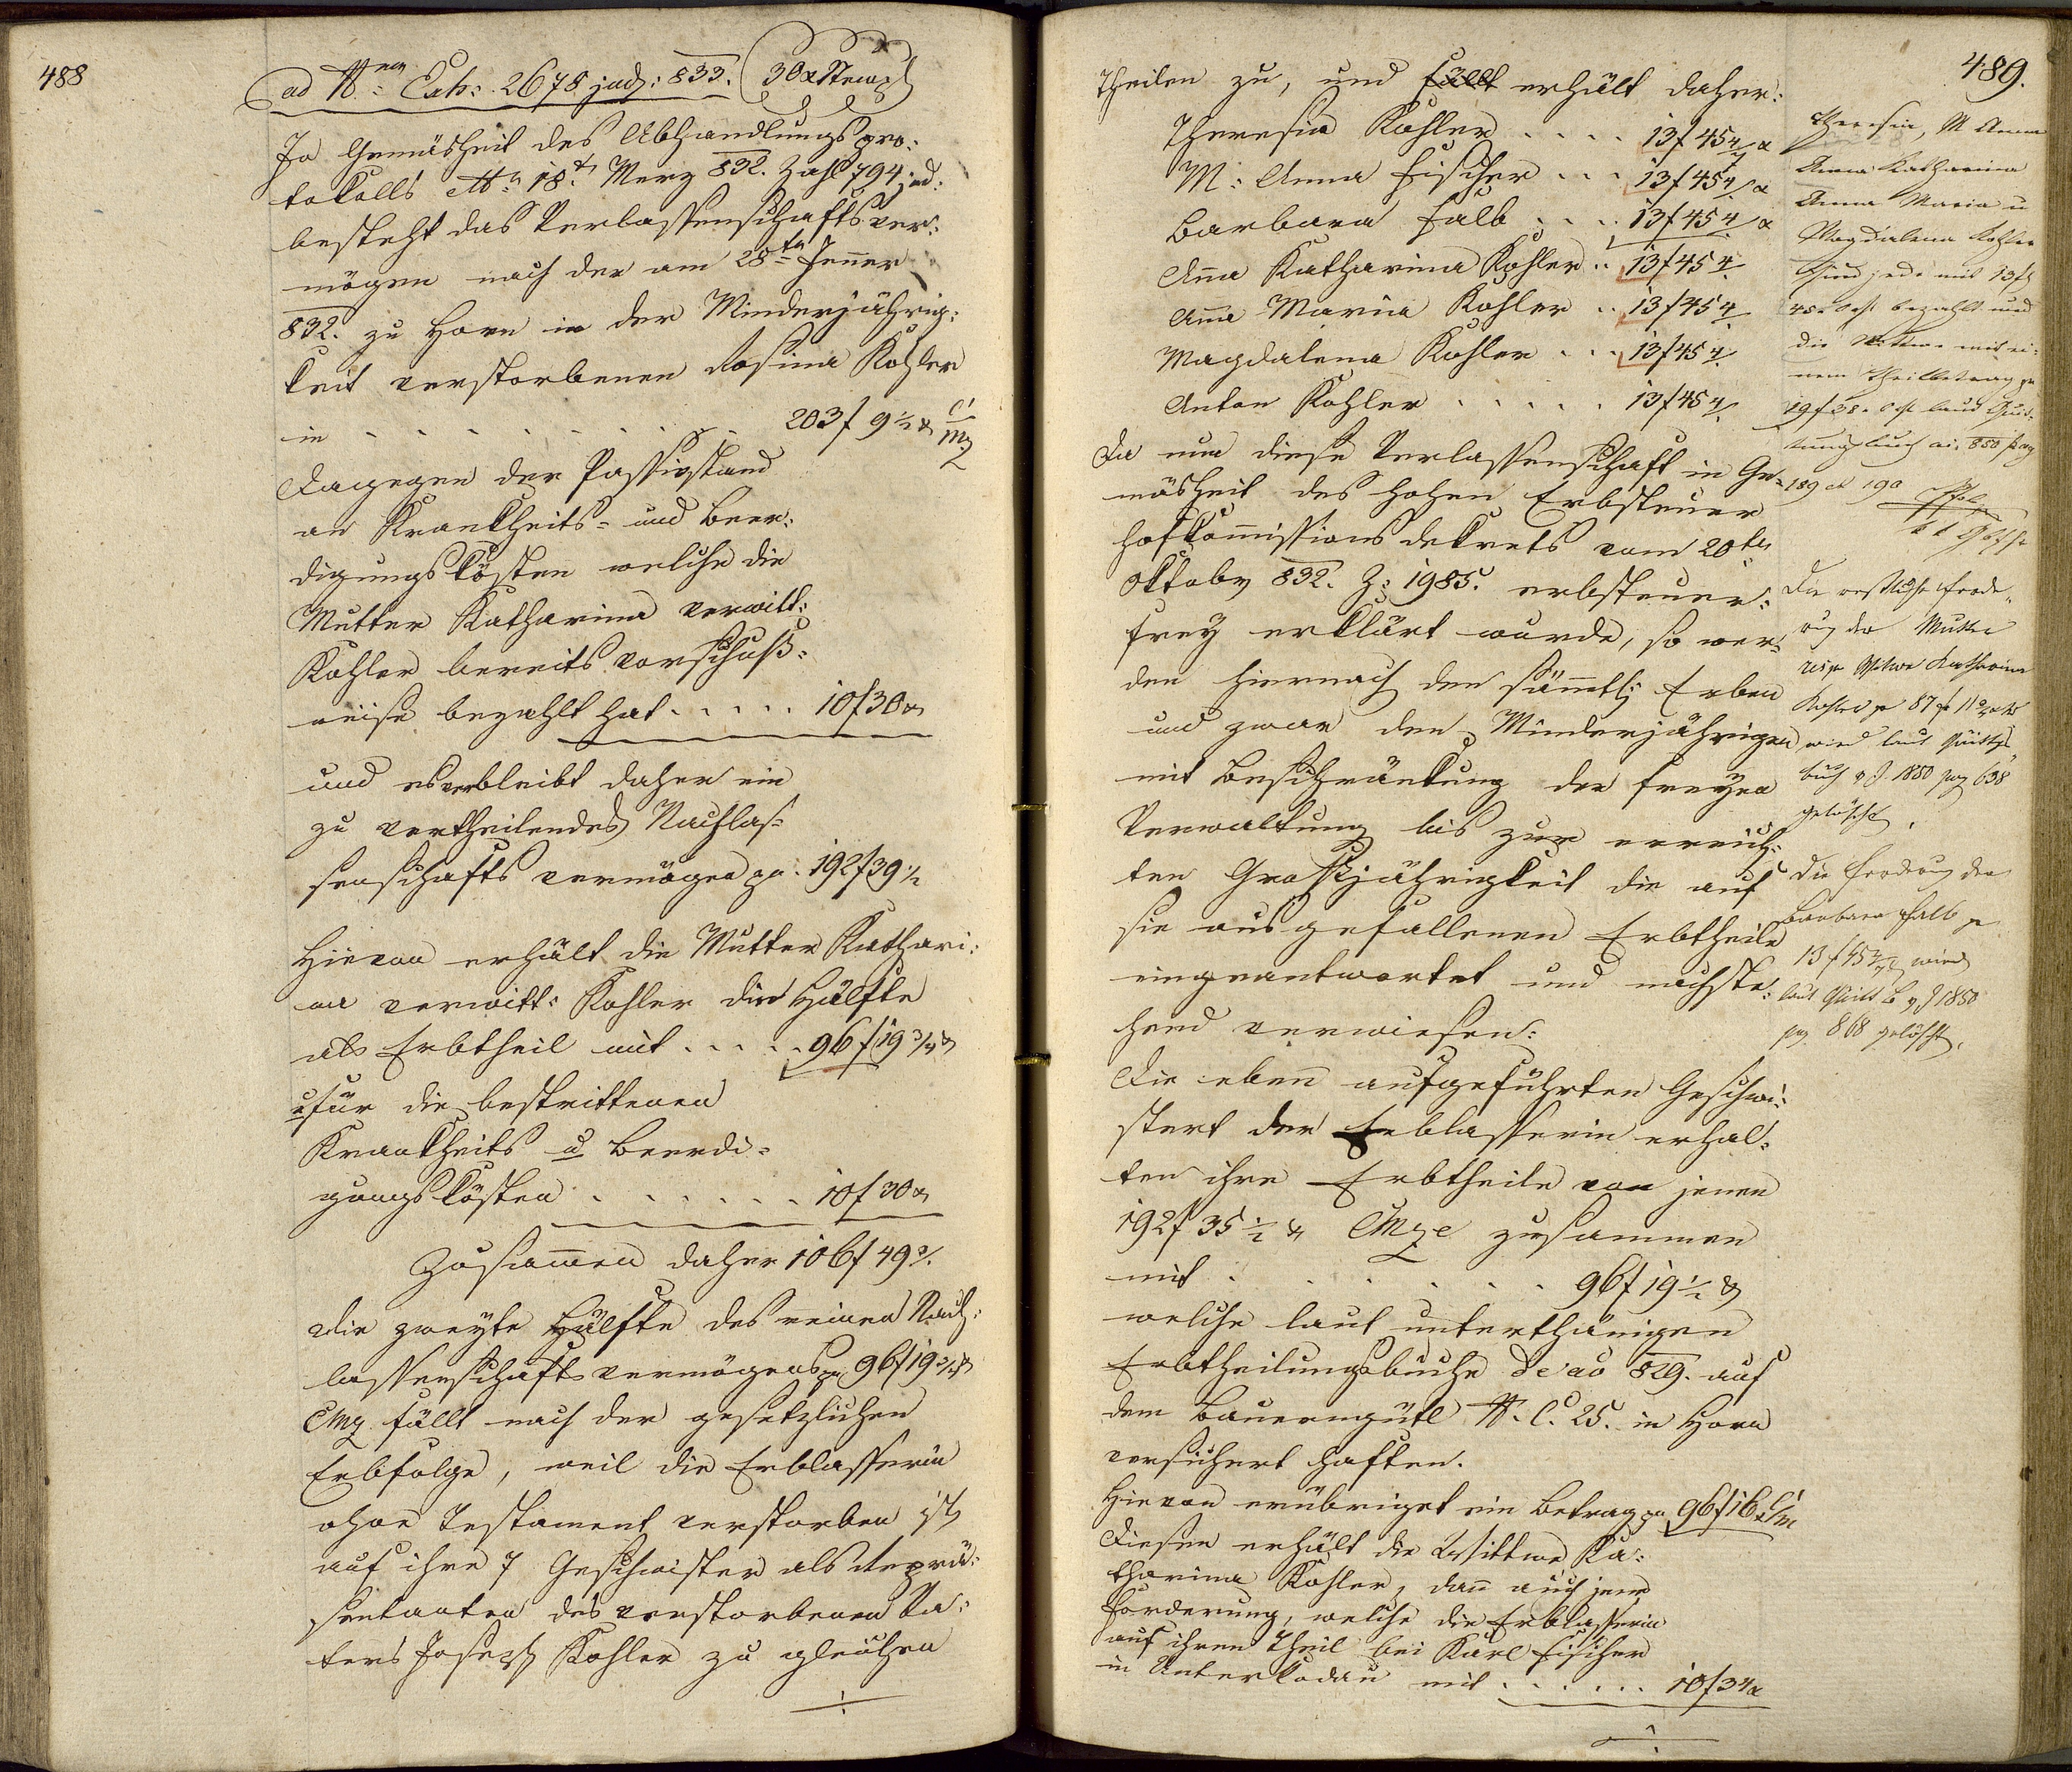 488
ad Nrum Exh: 2678 jud: 833. 30x Stempl
In Gemäsheit des Abhandlungspro:
tokolls 18t Merz 832. Zahl 794 jud:
besteht das Verlassenschaftsver:
mögen nach der am 28ten Jenner
832. zu Horn in der Minderjährig:
keit verstorbenen Rosina Kohler
in . . . . . . . . . 203f 9½x CMz
Dagegen der Passivstand
an Krankheits- und Beer:
digungskösten welche die
Mutter Katharina verwitt:
Kohler bereits vorschuß:
weise bezahlt hat . . . . . 10f 30x
und es verbleibt daher ein
zu vertheilendes Nachlas=
senschaftsvermögen pr. 192f 39½
Hievon erhält die Mutter Kathari:
na verwitt: Kohler die Hälfte
als Erbtheil mit . . . . . 96f 19¾x
u für die bestrittenen
Krankheits u Beerdi=
gungskösten . . . . . . . 10f 30x
Zusammen daher 106f 49¾
Die zweyte Hälfte des reinen Nach:
lassenschaftsvermögens pr 96f 19¾x
CMz fällt nach der gesetzlichen
Erbfolge, weil die Erblasserin
ohne Testament verstorben ist,
auf ihre 7 Geschwister als Reprä:
sentanten des verstorbenen Va:
ters Joseph Kohler zu gleichen
489.
Theilen zu, und fällt erhält daher:
Theresia Kohler . . . . 13f 45 4/7 x
M: Anna Fischer . . . 13f 45 4/7 x
Barbara Falb . . . . 13f 45 4/7 x
Anna Katharina Kohler . . 13f 45 4/7
Anna Maria Kohler . . 13f 45 4/7
Magdalena Kohler . . . 13f 45 4/7
Anton Kohler . . . . . 13f 45 4/7
Da nun diese Verlassenschaft in Ge=
mäsheit des hohen Erbsteuer
Hofkommissions Dekrets vom 20ten
Oktober 832. Z: 1985. erbsteuer:
frey erklärt wurde, so wer=
den hiernach den sämmtl: Erben
und zwar den Minderjährigen
mit Beschränkung der freyen
Verwaltung bis zur erreich:
ten Großjährigkeit die auf
sie ausgefallenen Erbtheile
eingeantwortet und nachste:
hend verwiesen:
Die eben aufgeführten Geschwi:
stert der Erblasserin erhal:
ten ihre Erbtheile von jenen
192f 35½x CMze zusammen
mit . . . . . . . 96f 19½x
welche laut unterthänigen
Erbtheilungsbuche de ao 829. auf
dem Bauerngütl N. C. 25. in Horn
versichert haften.
Hievon erübriget ein Betrag pr 96f 16x CM
Diesen erhält die Wittwe Ka:
tharina Kohler, dann auch jene
Forderung, welche die Erblasserin
auf ihren Theil bei Karl Fischer
in Unterkodau mit . . . . . . 10f 34x
Theresia, M Anna
Anna Katharina
Anna Maria u
Magdalena Kohler
sind jede mit 13f
45x bezahlt und
die Wittwe mit ei:
nem Theilbetrag pr
19f 38x laut Quit:
tungsbuch ai. 850 pag
189 et 190
Die restliche Forde=
rung der Mutter
resp Witwe Katharina
Kohler pr 87f 11¾x
wird laut Quittgs
buch v J. 1850 pag 638
gelöscht.
Die Forderung der
Barbara Falb pr
13f 45 4/7x wird
laut Quitt B v J 1850
pag 868 gelöscht.